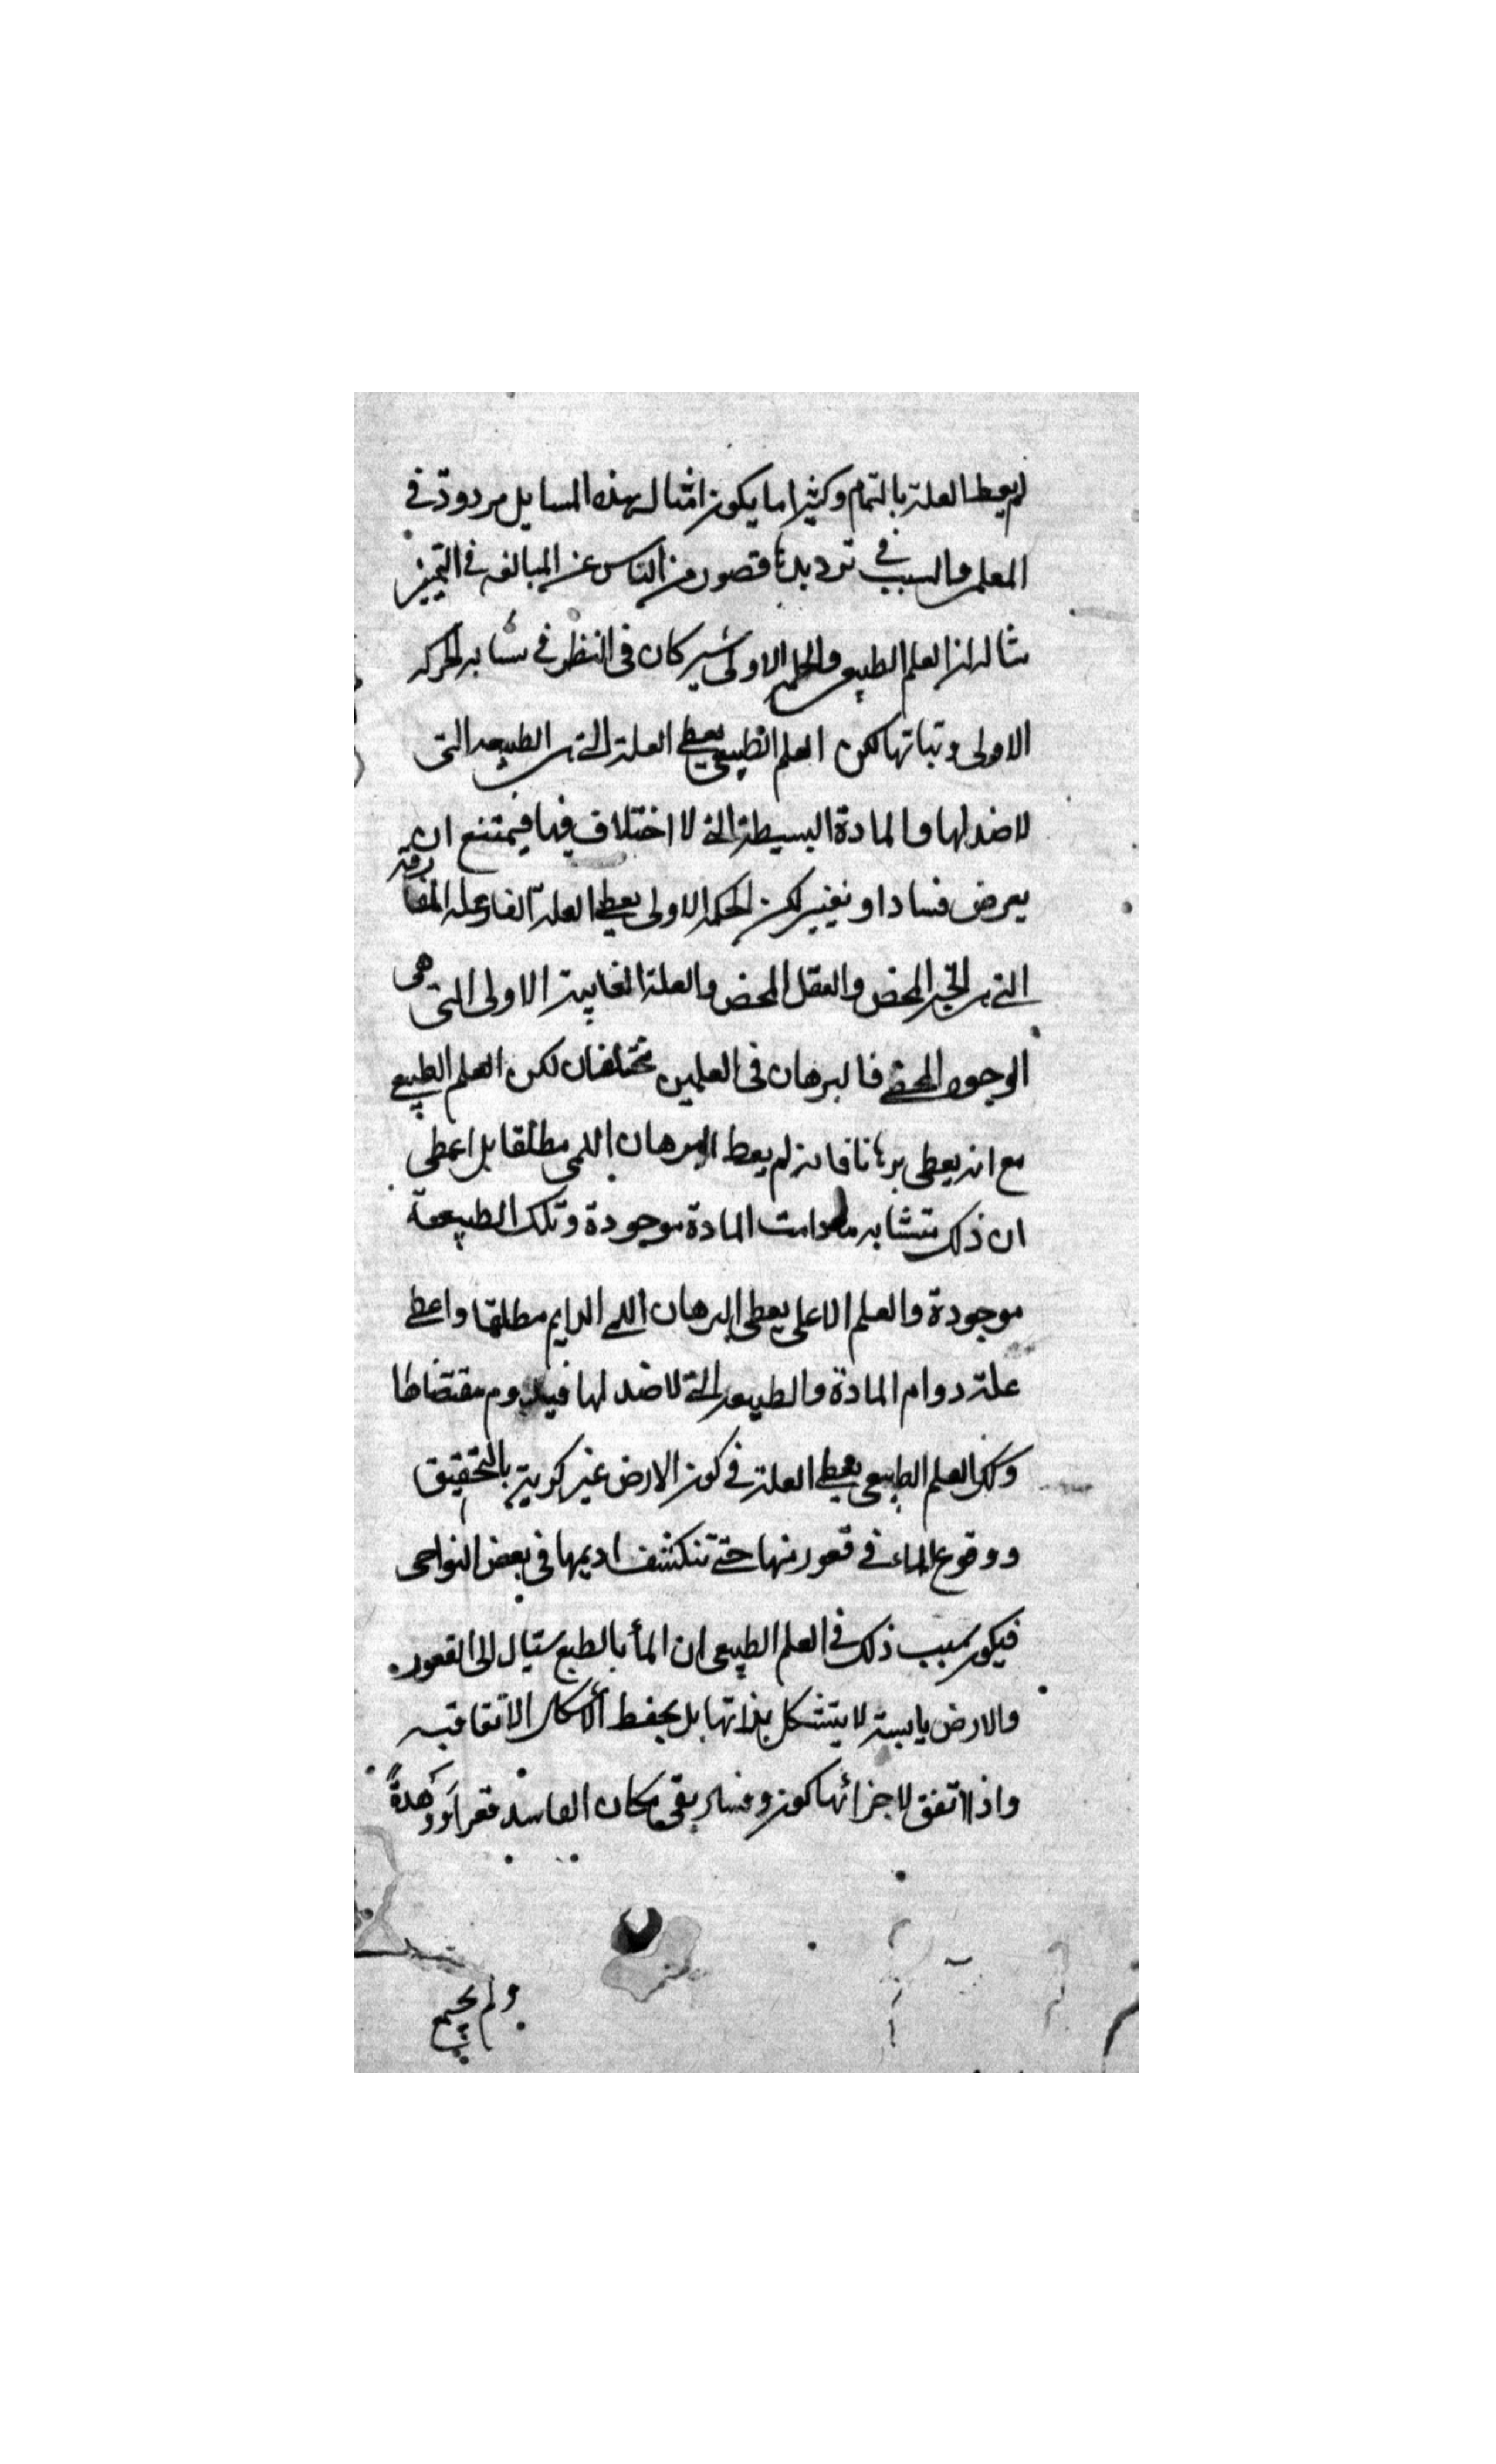 لم يعط العلة بالتمام وكثيرا ما يكون امثال هذه المسايل مردودة في
العلم والسبب في ترديدنا قصور من الناس عن المبالغه في التمييز
مثاله ان العلم الطبيعي والعلم الاولى يشيركان فى النظر في تشابه الحركه
الاولى وثباتها لكن العلم الطبيعي يعطي العلة التي هى الطبيعه التى
لا ضد لها والمادة البسيطة التي لا اختلاف فيها فيمتنع ان
يعرض فسادا وتغيير لكن الحكمه الاولى يعطي العلة الفاعله المفارقة
التي هى الخير المحض والعقل المحض والعلة الغايية الاولى التى هى
الوجود المحض فالبرهان فى العلمين مختلفان لكن العلم الطبيعي
مع انه يعطى برهانا فانه لم يعط البرهان اللمى مطلقا بل اعطى
ان ذلك متشابه مادامت المادة موجودة وتلك الطبيعة
موجودة والعلم الاعلى يعطى البرهان اللمي الدايم مطلقا واعطي
علة دوام المادة والطبيعه التي لا ضد لها فيدوم مقتضاها
وكك العلم الطبيعي يعطي العلة في كون الارض غير كرية بالتحقيق
ووقوع الماء في قعور منها حتي تنكشف اديمها فى بعض النواحى
فيكون سبب ذلك في العلم الطبيعى ان الماء بالطبع سيال الى القعور
والارض يابسة لا يتشكل بذاتها بل يحفظ الاشكال الاتفاقيه
واذا اتفق لاجزائها كون وفساد بقى مكان الفاسد قعرا ووهدة
ولم يجتمع